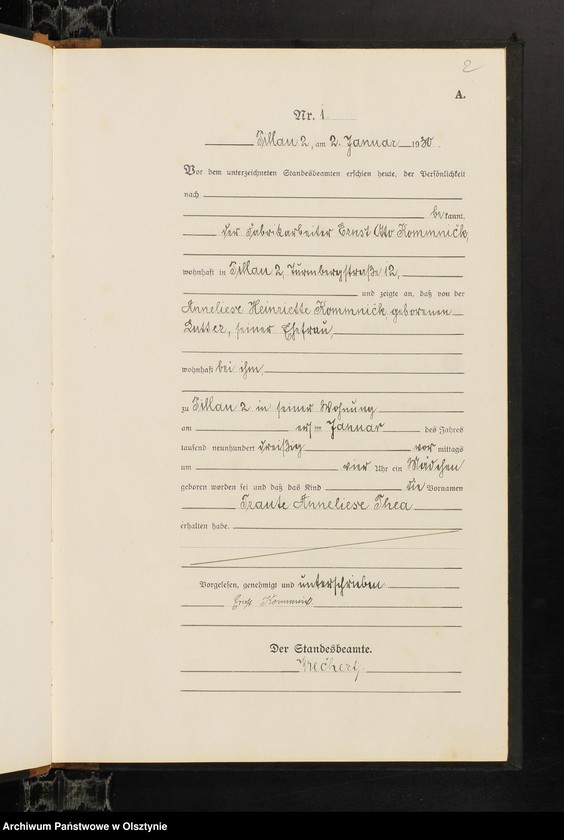 2
A.
Nr. 1
Pillau 2, am 2. Januar 1930
Vor dem unterzeichneten Standesbeamten erschien heute, der Persönlichkeit
nach
bekannt,
der Fabrikarbeiter Ernst Otto Kommnick,
wohnhaft in Pillau 2, Turmbergstraße 12,
und zeigte an, daß von der
Anneliese Heinriette Kommnick, geborenen
Lutter, seiner Ehefrau,
wohnhaft bei ihm,
zu Pillau 2 in seiner Wohnung
am ersten Januar des Jahres
tausend neunhundert dreißig vor mittags
um vier Uhr ein Mädchen
geboren worden sei und daß das Kind die Vornamen
Traute Anneliese Thea
erhalten habe.
Vorgelesen, genehmigt und unterschrieben
Ernst Kommnick
Der Standesbeamte.
Archiwum Państwowe w Olsztynie